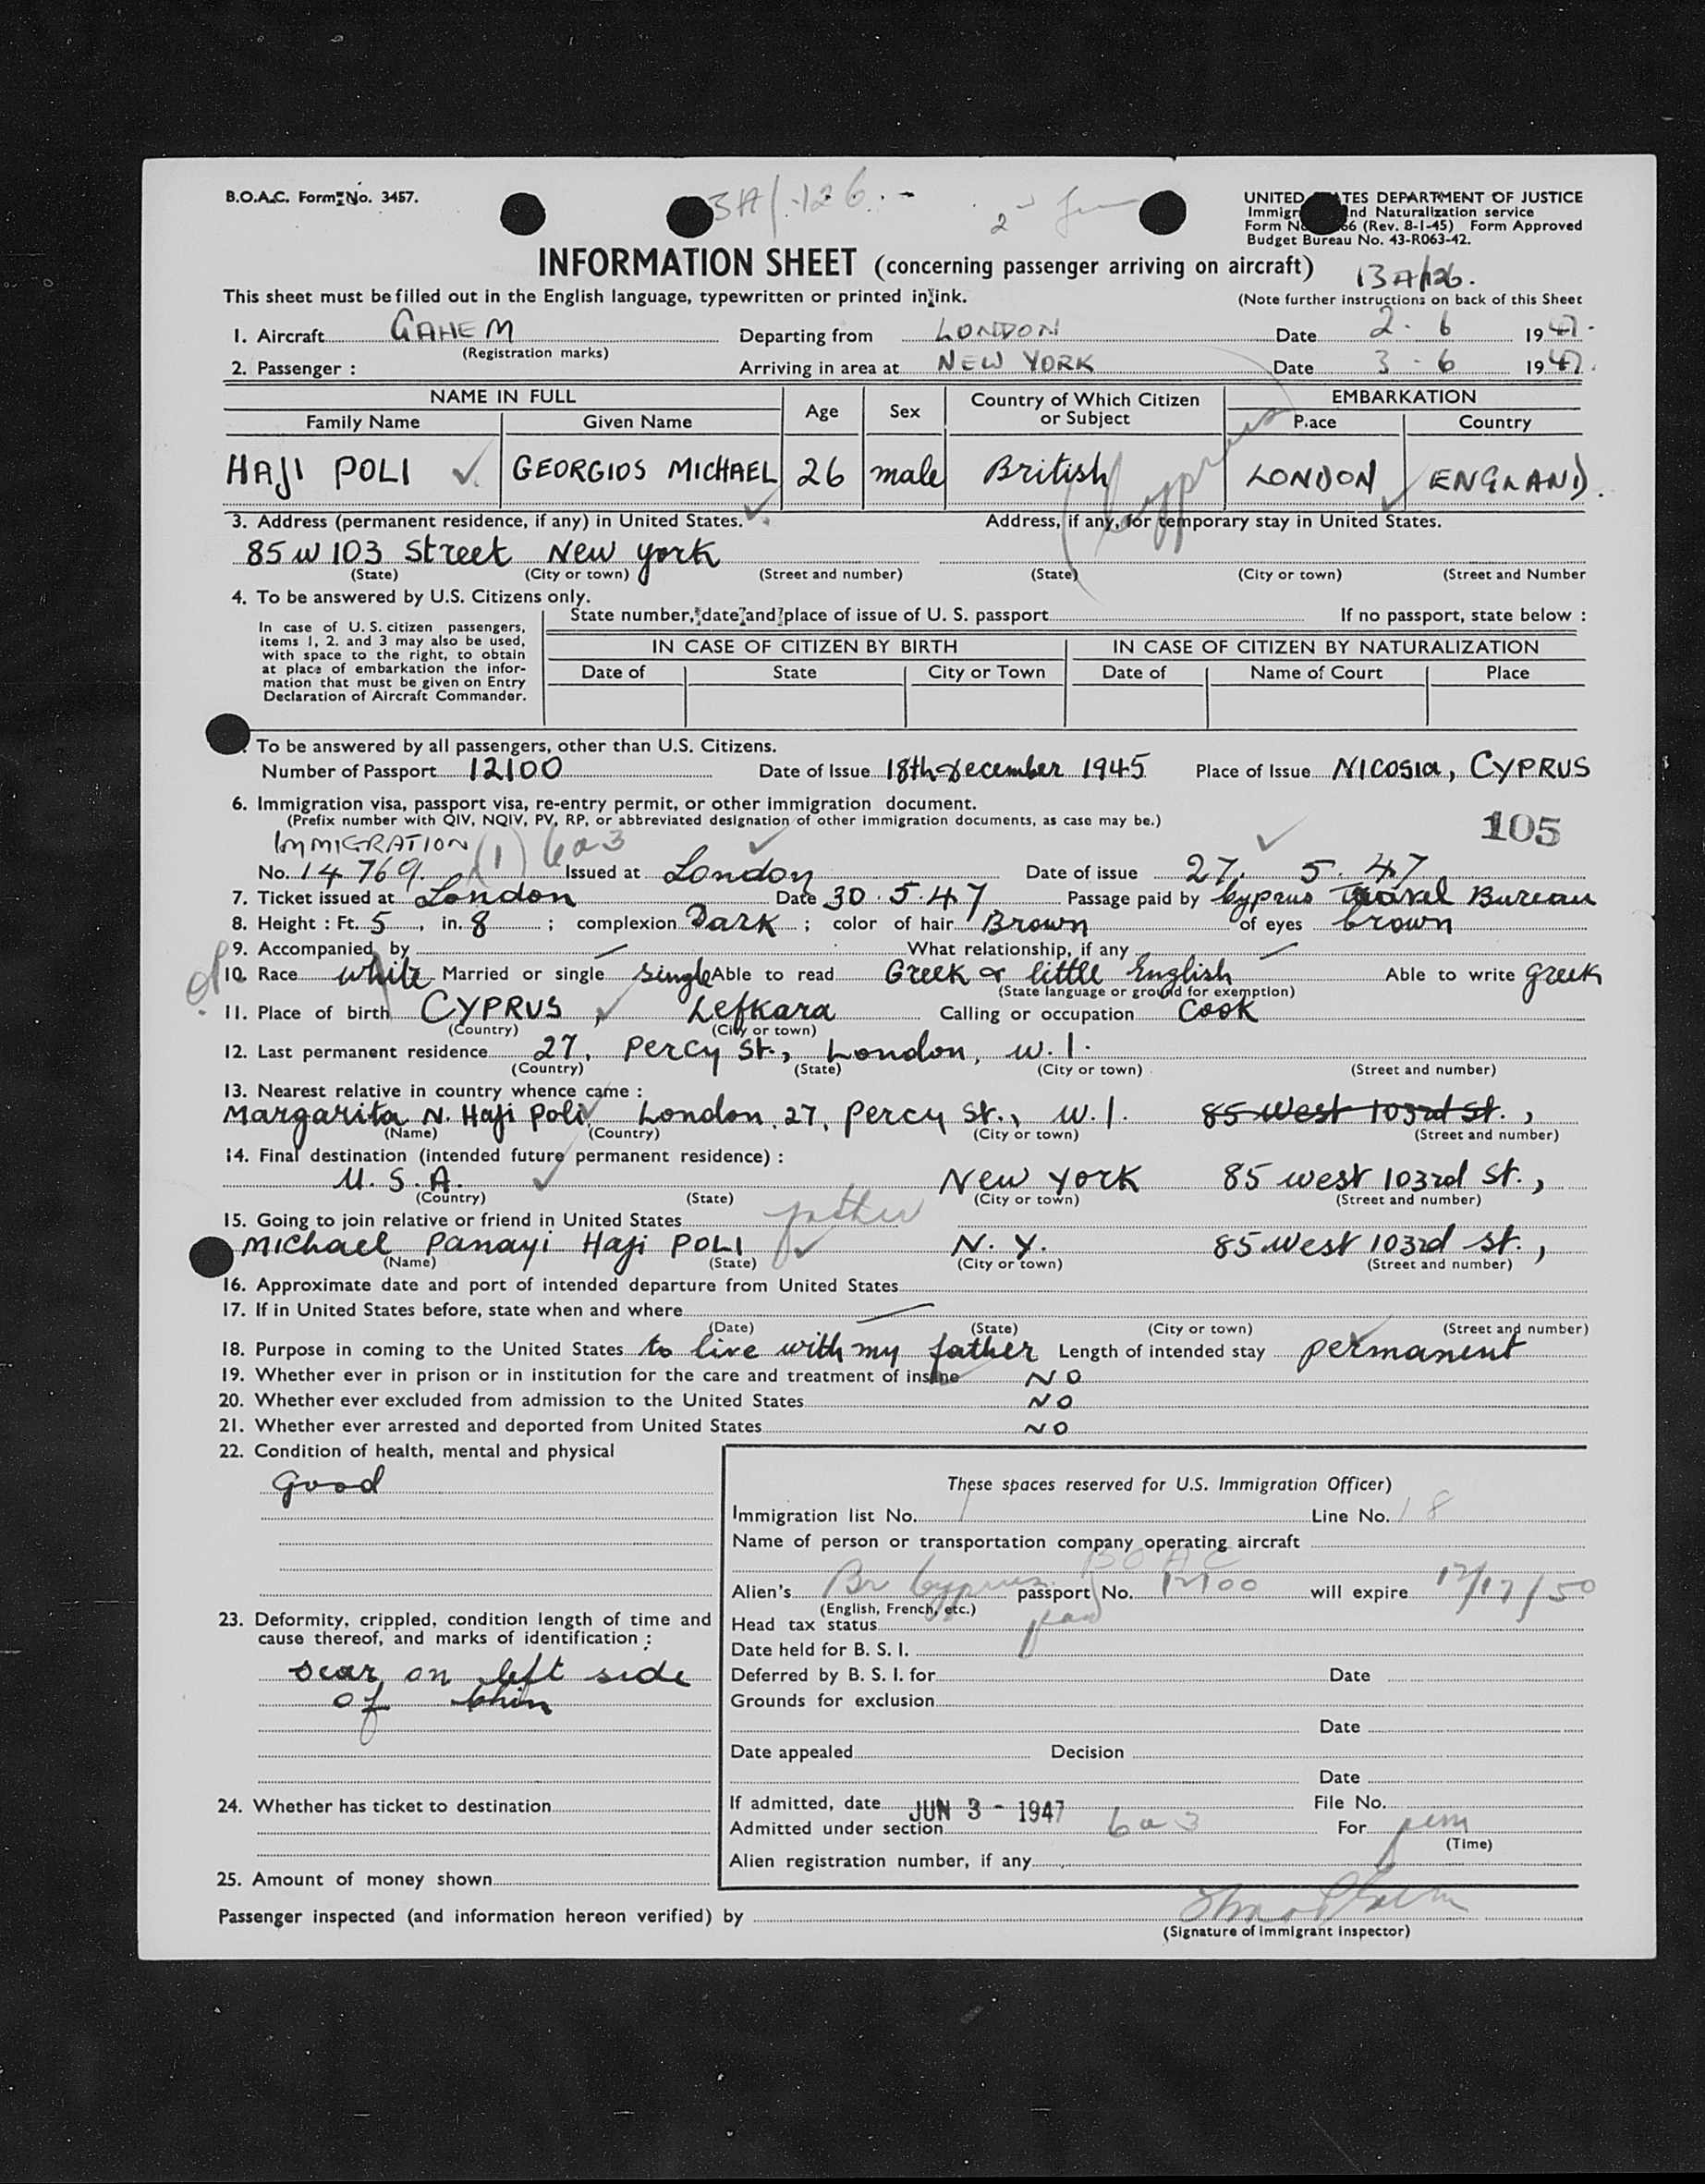 B.O.A.C. Form No. 3457.
3A/126.-
2nd
UNITED STATES DEPARTMENT OF JUSTICE
Immigr nd Naturalization service
Form No 66 (Rev. 8-1-45) Form Approved
Budget Bureau No. 43-R063-42.
INFORMATION SHEET (concerning passenger arriving on aircraft)
13A/126.
This sheet must be filled out in the English language, typewritten or printed in ink.
(Note further instructions on back of this Sheet
1. Aircraft GAHEM Departing from LONDON Date 2. 6 1947.
(Registration marks)
2. Passenger : Arriving in area at NEW YORK Date 3 - 6 1947.
NAME IN FULL Age Sex Country of Which Citizen or Subject EMBARKATION
Family Name Given Name Place Country
HAJI POLI GEORGIOS MICHAEL 26 male British (Cyprus) LONDON ENGLAND.
3. Address (permanent residence, if any) in United States. Address, if any, for temporary stay in United States.
85 W 103 Street New York
(State) (City or town) (Street and number) (State) (City or town) (Street and Number
4. To be answered by U.S. Citizens only.
State number, date and place of issue of U. S. passport If no passport, state below :
In case of U. S. citizen passengers,
items 1, 2, and 3 may also be used,
with space to the right, to obtain
at place of embarkation the infor-
mation that must be given on Entry
Declaration of Aircraft Commander.
IN CASE OF CITIZEN BY BIRTH IN CASE OF CITIZEN BY NATURALIZATION
Date of State City or Town Date of Name of Court Place
To be answered by all passengers, other than U.S. Citizens.
Number of Passport 12100 Date of Issue 18th December 1945 Place of Issue NICOSIA, CYPRUS
6. Immigration visa, passport visa, re-entry permit, or other immigration document.
(Prefix number with QIV, NQIV, PV, RP, or abbreviated designation of other immigration documents, as case may be.)
105
IMMIGRATION (1) 6a3
No. 14769. Issued at London Date of issue 27. 5. 47
7. Ticket issued at London Date 30.5.47 Passage paid by Cyprus Travel Bureau
8. Height : Ft. 5, in. 8 ; complexion Dark ; color of hair Brown of eyes brown
9. Accompanied by — What relationship, if any —
10. Race white Married or single single Able to read Greek & little English Able to write greek
(State language or ground for exemption)
11. Place of birth CYPRUS, Lefkara Calling or occupation Cook
(Country) (City or town)
12. Last permanent residence 27, Percy St., London, W.1.
(Country) (State) (City or town) (Street and number)
13. Nearest relative in country whence came :
Margarita N. Haji Poli London 27, Percy St., W.1. 85 West 103rd St.,
(Name) (Country) (City or town) (Street and number)
14. Final destination (intended future permanent residence) :
U.S.A. New York 85 West 103rd St.,
(Country) (State) (City or town) (Street and number)
15. Going to join relative or friend in United States father
Michael Panayi Haji POLI N.Y. 85 West 103rd St.,
(Name) (State) (City or town) (Street and number)
16. Approximate date and port of intended departure from United States
17. If in United States before, state when and where —
(Date) (State) (City or town) (Street and number)
18. Purpose in coming to the United States to live with my father Length of intended stay permanent
19. Whether ever in prison or in institution for the care and treatment of insane NO
20. Whether ever excluded from admission to the United States NO
21. Whether ever arrested and deported from United States NO
22. Condition of health, mental and physical
Good
These spaces reserved for U.S. Immigration Officer)
Immigration list No. 1 Line No. 18
Name of person or transportation company operating aircraft
BOAC
Alien's Br Cyprus passport No. 12100 will expire 12/17/50
(English, French, etc.)
23. Deformity, crippled, condition length of time and
cause thereof, and marks of identification :
scar on left side
of chin
Head tax status paid
Date held for B. S. I.
Deferred by B. S. I. for Date
Grounds for exclusion
Date
Date appealed Decision
Date
24. Whether has ticket to destination
If admitted, date JUN 3 - 1947 File No.
Admitted under section 6a3 For perm
(Time)
Alien registration number, if any
25. Amount of money shown
Passenger inspected (and information hereon verified) by
(Signature of Immigrant Inspector)